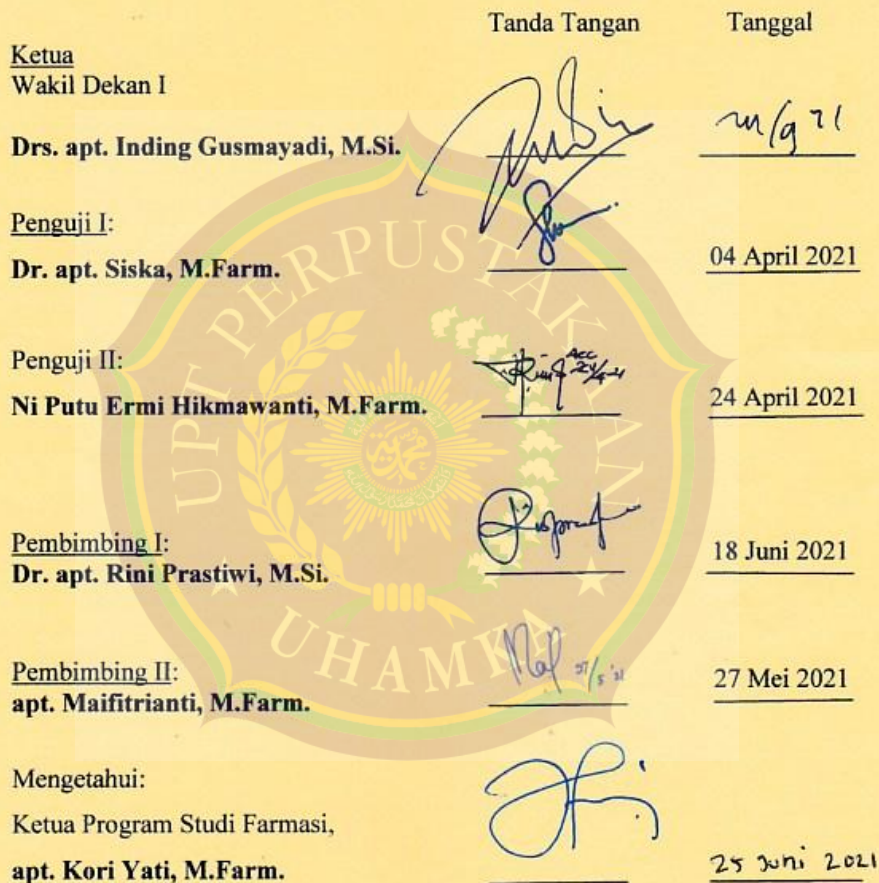 Tanda Tangan Tanggal
Ketua
Wakil Dekan I
Drs. apt. Inding Gusmayadi, M.Si.
Penguji I:
Dr. apt. Siska, M.Farm. 04 April 2021
Penguji II:
Acc
24/4-21
Ni Putu Ermi Hikmawanti, M.Farm. 24 April 2021
Pembimbing I:
Dr. apt. Rini Prastiwi, M.Si. 18 Juni 2021
Pembimbing II:
27/5 '21
apt. Maifitrianti, M.Farm. 27 Mei 2021
Mengetahui:
Ketua Program Studi Farmasi,
apt. Kori Yati, M.Farm. 25 Juni 2021
UPT PERPUSTAKAAN
UHAMKA